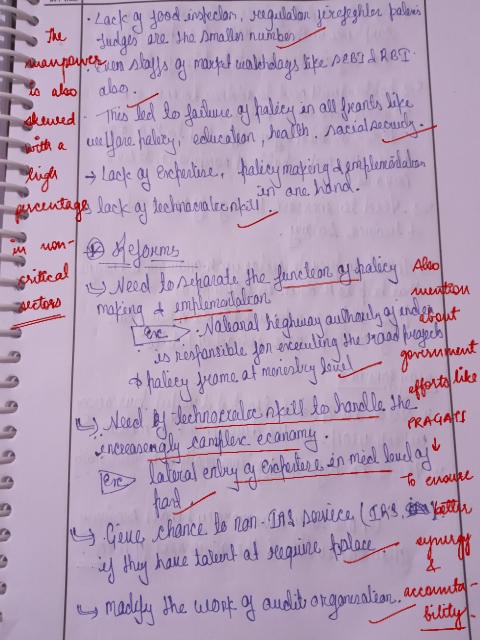 • Lack of food inspector, regulator firefighter
Judges are the smaller number
• Even staffs of market watchdogs like SEBI & RBI
also.
• This led to failure of policy in all fronts like
welfare policy, education, health, social security.
→ Lack of Expertise, policy making & implementation
in one hand.
lack of technocratic skill
The
manpower
is also
skewed
with a
high
percentage
in non-
critical
sectors
Reforms
↳ Need to separate the function of policy
making & implementation
Ex: • National highway authority of
is responsible for executing the road projects
& policy frame at level
↳ Need of technocratic skill to handle the
increasingly complex economy.
Ex: lateral entry of expertise in mid level of
↳ Give chance to non-IAS service (IRS,
if they have talent at require
↳ modify the work of audit organisation.
Also
mention
about
government
efforts like
PRAGATI
↓
To ensure
better
synergy
&
accounta-
bility.